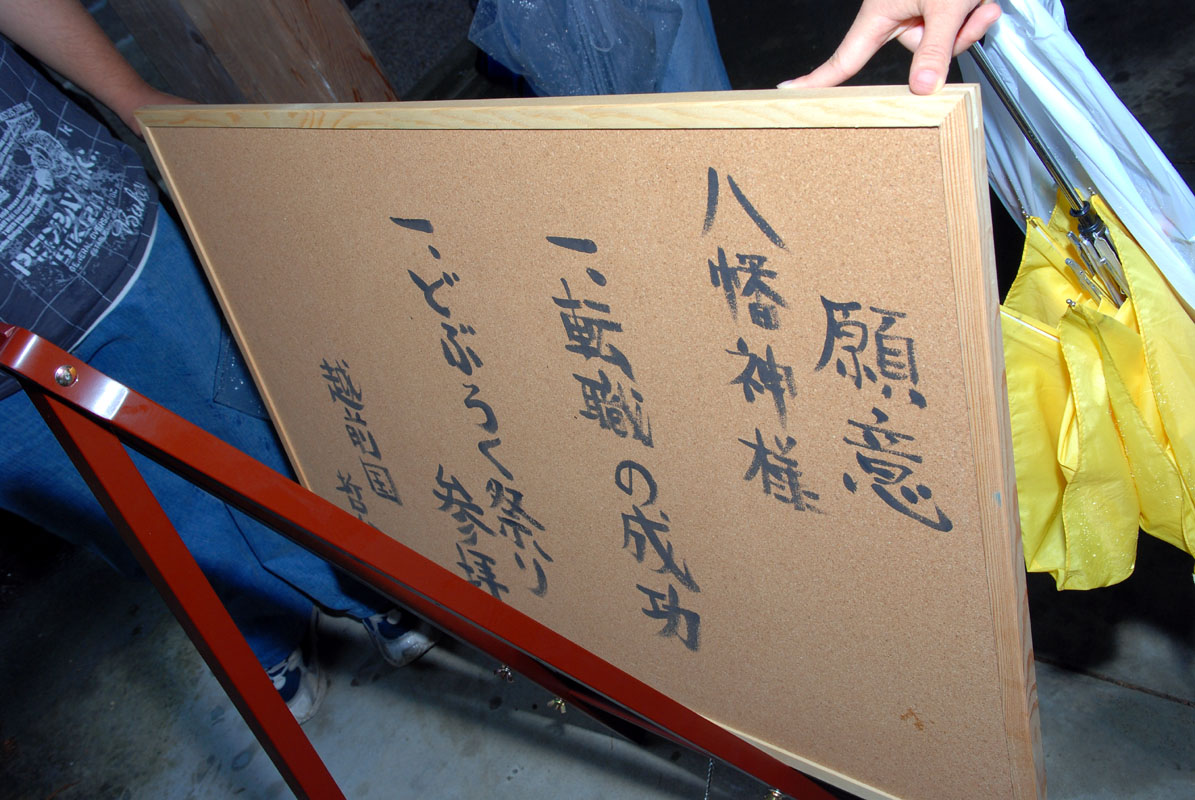 願意
八幡神様
一、転職の成功
一、どぶろく祭り
参拝